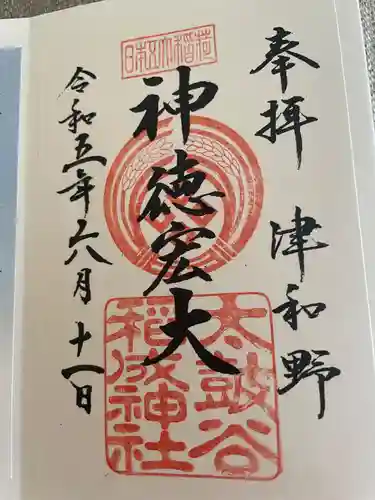 奉拝 津和野
日本五大稲荷
神徳宏大
太皷谷稲成神社
令和五年六八月十一日